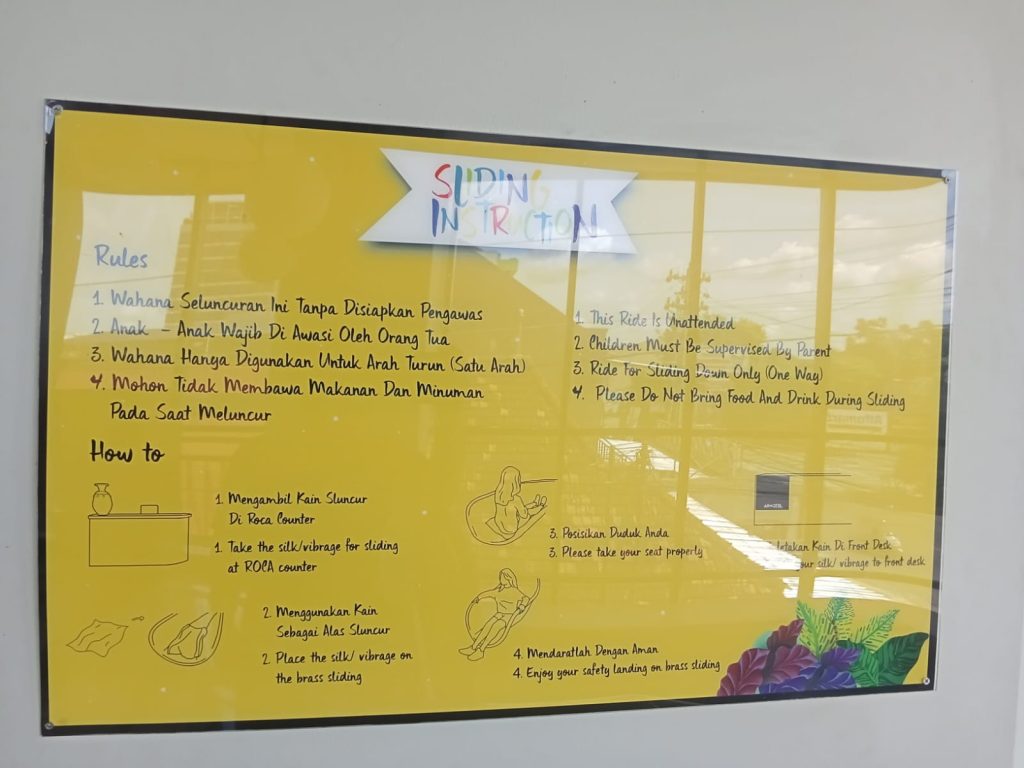 SLIDING
INSTRUCTION
Rules
1. Wahana Seluncuran Ini Tanpa Disiapkan Pengawas
2. Anak - Anak Wajib Di Awasi Oleh Orang Tua
3. Wahana Hanya Digunakan Untuk Arah Turun (Satu Arah)
4. Mohon Tidak Membawa Makanan Dan Minuman
Pada Saat Meluncur
1. This Ride Is Unattended
2. Children Must Be Supervised By Parent
3. Ride For Sliding Down Only (One Way)
4. Please Do Not Bring Food And Drink During Sliding
How to
1. Mengambil Kain Sluncur
Di Roca Counter
1. Take the silk/vibrage for sliding
at ROCA counter
2. Menggunakan Kain
Sebagai Alas Sluncur
2. Place the silk/ vibrage on
the brass sliding
3. Posisikan Duduk Anda
3. Please take your seat properly
4. Mendaratlah Dengan Aman
4. Enjoy your safety landing on brass sliding
Kain Di Front Desk
silk/ vibrage to front desk